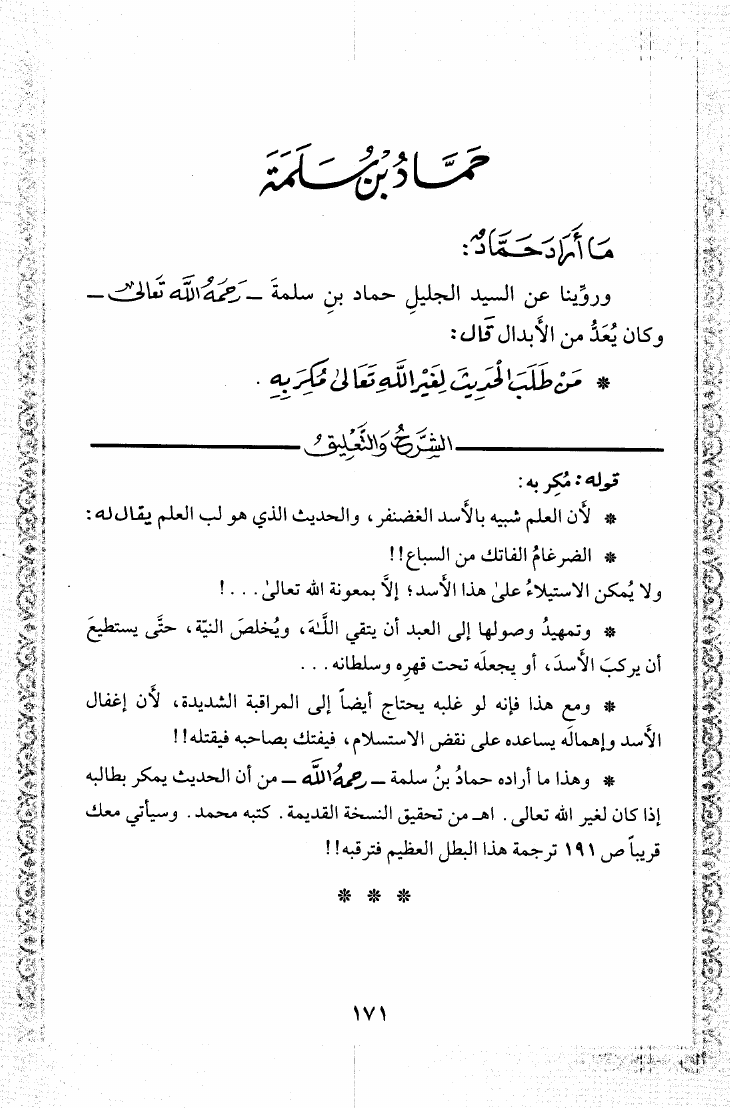 حَمَّادُ بْنُ سَلَمَةَ
مَا أَرَادَ حَمَّادٌ:
وروِّينا عن السيد الجليلِ حماد بنِ سلمةَ ــ رَحِمَهُ اللَّه تعَالىٰ ــ
وكان يُعَدُّ من الأبدال قَال:
* مَنْ طَلَبَ الْحَدِيثَ لِغَيْرِ اللَّهِ تَعَالىٰ مُكِرَ بِهِ .
الشَّرْحُ وَالتَّعْلِيقُ
قوله: مُكِر به:
* لأن العلم شبيه بالأسد الغضنفر، والحديث الذي هو لب العلم يقال له:
* الضرغامُ الفاتك من السباع!!
ولا يُمكن الاستيلاءُ علىٰ هذا الأسد؛ إلَّا بمعونة الله تعالىٰ...!
* وتمهيدُ وصولها إلى العبد أن يتقي اللَّـهَ، ويُخلصَ النيّة، حتَّى يستطيعَ
أن يركبَ الأسدَ، أو يجعلَه تحت قهرِه وسلطانه...
* ومع هذا فإنه لو غلبه يحتاج أيضاً إلى المراقبة الشديدة، لأن إغفال
الأسد وإهمالَه يساعده على نقض الاستسلام، فيفتك بصاحبه فيقتله!!
* وهذا ما أراده حمادُ بنُ سلمة ــ رحمهُ اللَّه ــ من أن الحديث يمكر بطالبه
إذا كان لغير الله تعالى. اهـ من تحقيق النسخة القديمة. كتبه محمد. وسيأتي معك
قريباً ص ١٩١ ترجمة هذا البطل العظيم فترقبه!!
* * *
١٧١